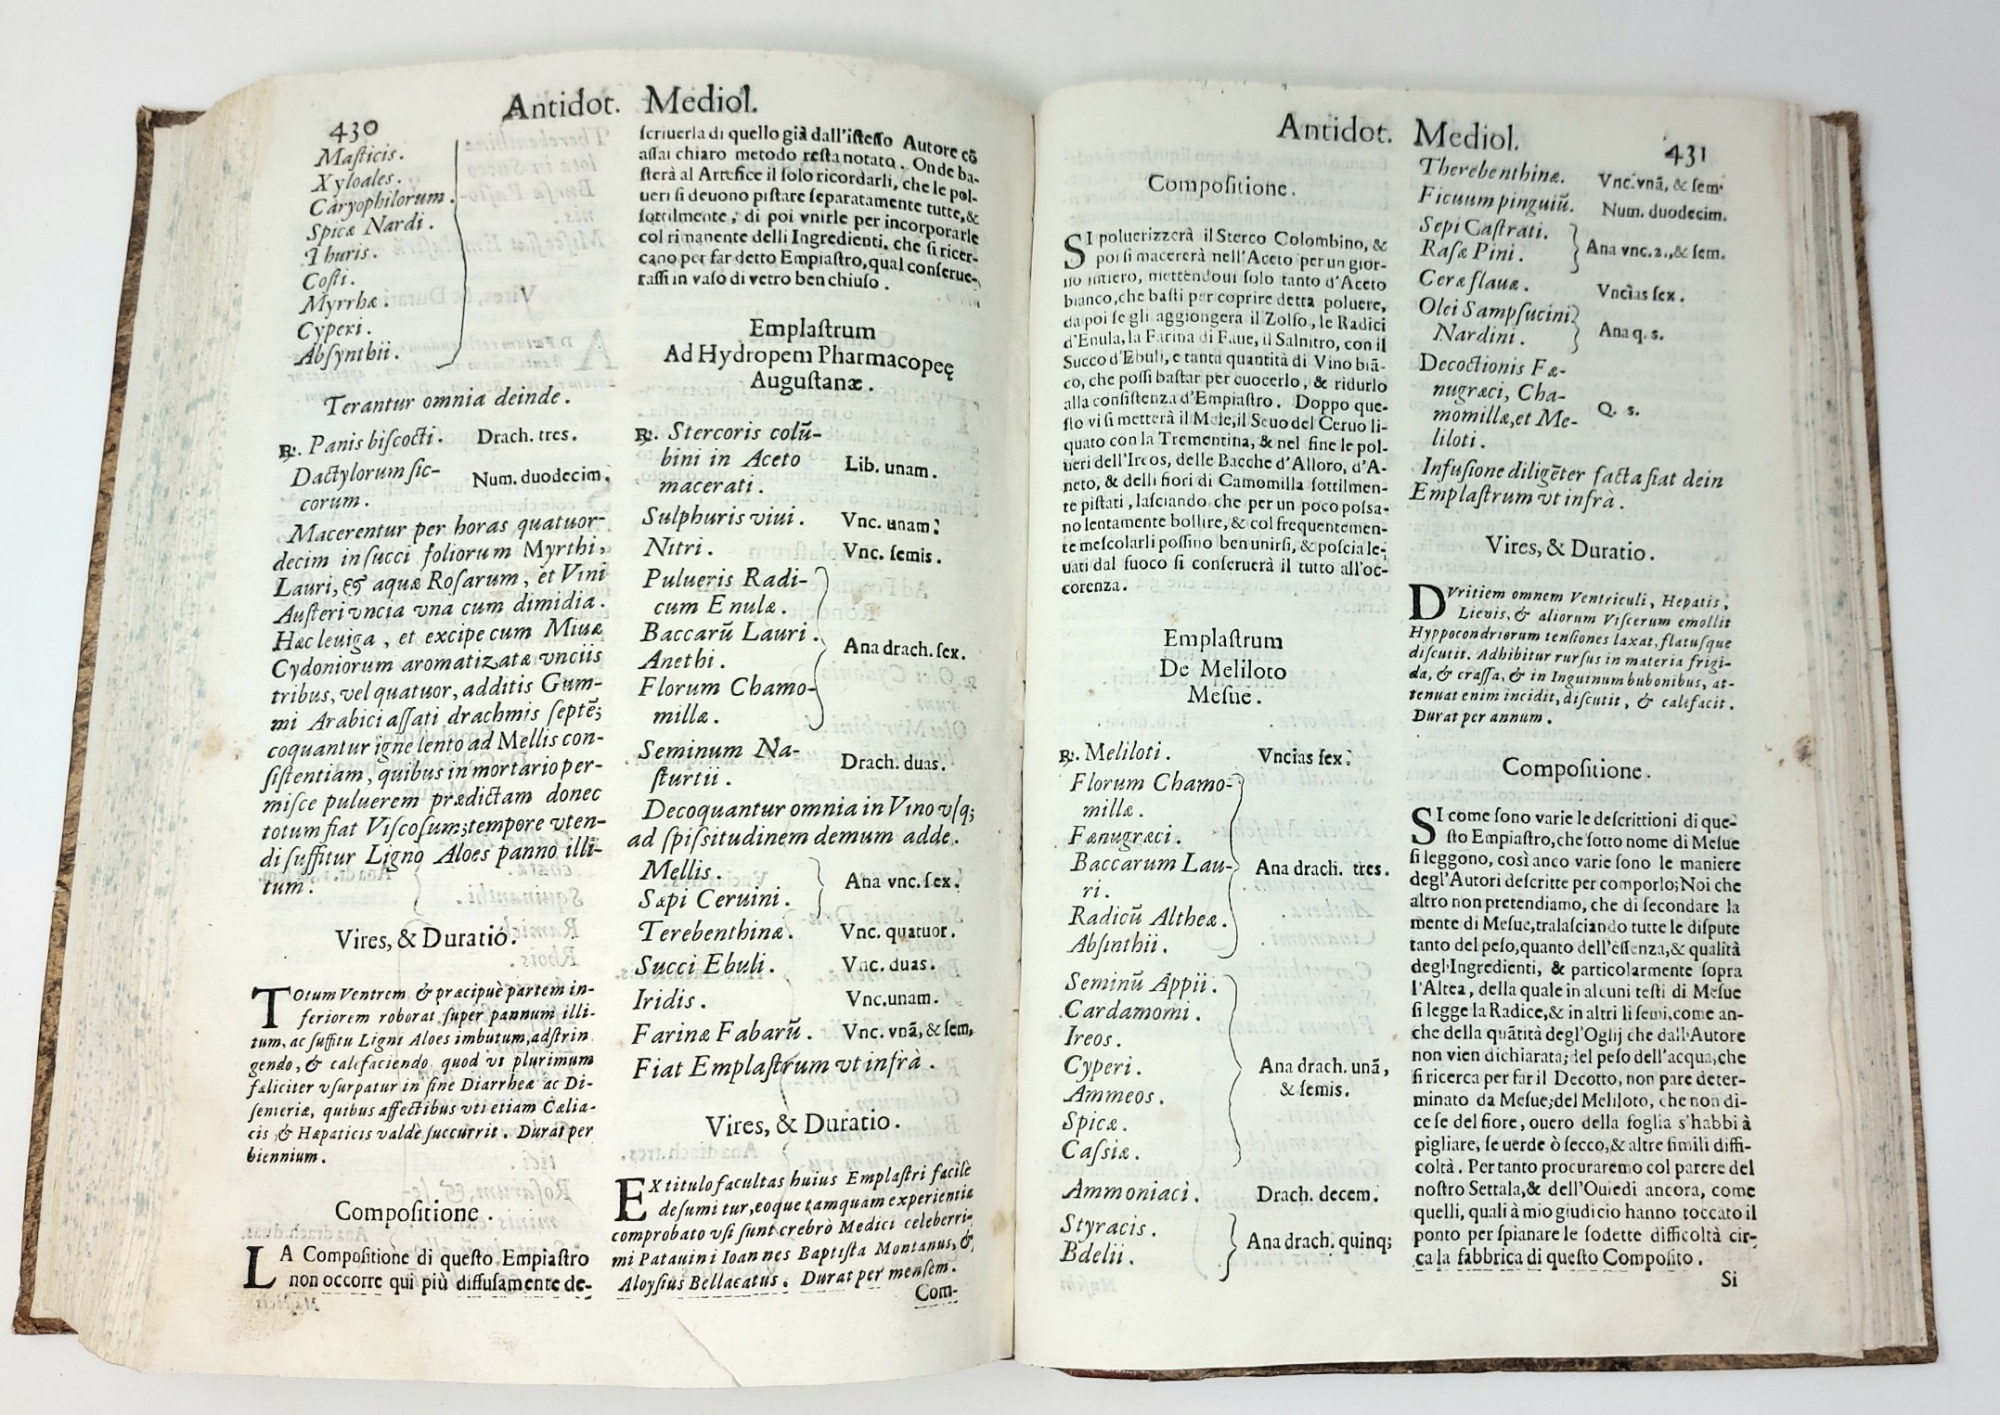 430
Antidot. Mediol.
Maſticis.
Xyloales.
Caryophilorum.
Spicæ Nardi.
Thuris.
Coſti.
Myrrhæ.
Cyperi.
Abſynthii.
Terantur omnia deinde.
℞. Panis biſcocti. Drach. tres.
Dactylorum ſic-
corum. Num. duodecim.
Macerentur per horas quatuor-
decim in ſucci foliorum Myrthi,
Lauri, & aquæ Roſarum, et Vini
Auſteri vncia vna cum dimidia.
Hæc leuiga, et excipe cum Miuæ
Cydoniorum aromatizatæ vnciis
tribus, vel quatuor, additis Gum-
mi Arabici aſſati drachmis ſeptē;
coquantur igne lento ad Mellis con-
ſiſtentiam, quibus in mortario per-
miſce puluerem prædictam donec
totum fiat Viſcoſum; tempore vten-
di ſuffitur Ligno Aloes panno illi-
tum.
Vires, & Duratio.
TOtum Ventrem & præcipuè partem in-
feriorem roborat ſuper pannum illi-
tum, ac ſuffitu Ligni Aloes imbutum, adſtrin
gendo, & calefaciendo quod vt plurimum
fæliciter vſurpatur in fine Diarrheæ ac Di-
ſenteriæ, quibus affectibus vti etiam Cælia-
cis & Hæpaticis valdè ſuccurrit. Durat per
biennium.
Compoſitione.
LA Compoſitione di queſto Empiaſtro
non occorre qui più diffuſamente de-
ſcriuerla di quello già dall'iſteſſo Autore cō
aſſai chiaro metodo reſta notato. Onde ba-
ſterà al Artefice il ſolo ricordarli, che le pol-
ueri ſi deuono piſtare ſeparatamente tutte, &
ſottilmente, di poi vnirle per incorporarle
col rimanente delli Ingredienti, che ſi ricer-
cano per far detto Empiaſtro, qual conſerue-
raſſi in vaſo di vetro ben chiuſo.
Emplaſtrum
Ad Hydropem Pharmacopeę
Auguſtanæ.
℞. Stercoris colū-
bini in Aceto
macerati. Lib. unam.
Sulphuris viui. Vnc. unam.
Nitri. Vnc. ſemis.
Pulueris Radi-
cum Enulæ.
Baccarū Lauri.
Anethi.
Florum Chamo-
millæ. Ana drach. ſex.
Seminum Na-
ſturtii. Drach. duas.
Decoquantur omnia in Vino vſq;
ad ſpiſſitudinem demum adde.
Mellis.
Sæpi Ceruini. Ana vnc. ſex.
Terebenthinæ. Vnc. quatuor.
Succi Ebuli. Vnc. duas.
Iridis. Vnc. unam.
Farinæ Fabarū. Vnc. vnā, & ſem,
Fiat Emplaſtrum vt infrà.
Vires, & Duratio.
EX titulo facultas huius Emplaſtri facilè
deſumitur, eoque tamquam experientia
comprobato vſi ſunt crebrò Medici celeberri-
mi Patauini Ioannes Baptiſta Montanus, &
Aloyſius Bellacatus. Durat per menſem.
Com-
Antidot. Mediol.
431
Compoſitione.
SI poluerizzerà il Sterco Colombino, &
poi ſi macererà nell'Aceto per un gior-
no intiero, mettendoui ſolo tanto d'Aceto
bianco, che baſti per coprire detta poluere,
da poi ſe gli aggiongerà il Zolfo, le Radici
d'Enula, la Farina di Faue, il Salnitro, con il
Succo d'Ebuli, e tanta quantità di Vino biā-
co, che poſſi baſtar per cuocerlo, & ridurlo
alla conſiſtenza d'Empiaſtro. Doppo que-
ſto vi ſi metterà il Mele, il Seuo del Ceruo li-
quato con la Trementina, & nel fine le pol-
ueri dell'Ireos, delle Bacche d'Alloro, d'A-
neto, & delli fiori di Camomilla ſottilmen-
te piſtati, laſciando che per un poco poſſa-
no lentamente bollire, & col frequentemen-
te meſcolarli poſſino ben unirſi, & poſcia le-
uati dal fuoco ſi conſeruerà il tutto all'oc-
correnza.
Emplaſtrum
De Meliloto
Meſue.
℞. Meliloti. Vncias ſex.
Florum Chamo-
millæ.
Fænugræci.
Baccarum Lau-
ri.
Radicū Altheæ.
Abſinthii. Ana drach. tres.
Seminū Appii.
Cardamomi.
Ireos.
Cyperi.
Ammeos.
Spicæ.
Caſſiæ. Ana drach. unā,
& ſemis.
Ammoniaci. Drach. decem.
Styracis.
Bdelii. Ana drach. quinq;
Therebenthinæ. Vnc. vnā, & ſem.
Ficuum pinguiū. Num. duodecim.
Sepi Caſtrati.
Raſæ Pini. Ana vnc. 2., & ſem.
Ceræ flauæ. Vncias ſex.
Olei Sampſucini
Nardini. Ana q. s.
Decoctionis Fæ-
nugræci, Cha-
momillæ, et Me-
liloti. Q. s.
Infuſione diligēter facta fiat dein
Emplaſtrum vt infrà.
Vires, & Duratio.
DVritiem omnem Ventriculi, Hepatis,
Lienis, & aliorum Viſcerum emollit
Hyppocondriorum tenſiones laxat, flatuſque
diſcutit. Adhibitur rurſus in materia frigi-
da, & craſſa, & in Inguinum bubonibus, at-
tenuat enim incidit, diſcutit, & calefacit.
Durat per annum.
Compoſitione.
SI come ſono varie le deſcrittioni di que-
ſto Empiaſtro, che ſotto nome di Meſue
ſi leggono, così anco varie ſono le maniere
degl'Autori deſcritte per comporlo; Noi che
altro non pretendiamo, che di ſecondare la
mente di Meſue, tralaſciando tutte le diſpute
tanto del peſo, quanto dell'eſſenza, & qualità
degl'Ingredienti, & particolarmente ſopra
l'Altea, della quale in alcuni teſti di Meſue
ſi legge la Radice, & in altri li ſemi, come an-
che della quātità degl'Oglij che dall'Autore
non vien dichiarata; del peſo dell'acqua, che
ſi ricerca per far il Decotto, non pare deter-
minato da Meſue; del Meliloto, che non di-
ce ſe del fiore, ouero della foglia s'habbi à
pigliare, ſe uerde ò ſecco, & altre ſimili diffi-
coltà. Per tanto procuraremo col parere del
noſtro Settala, & dell'Ouiedi ancora, come
quelli, quali à mio giudicio hanno toccato il
ponto per ſpianare le ſodette difficoltà cir-
ca la fabbrica di queſto Compoſito.
Si